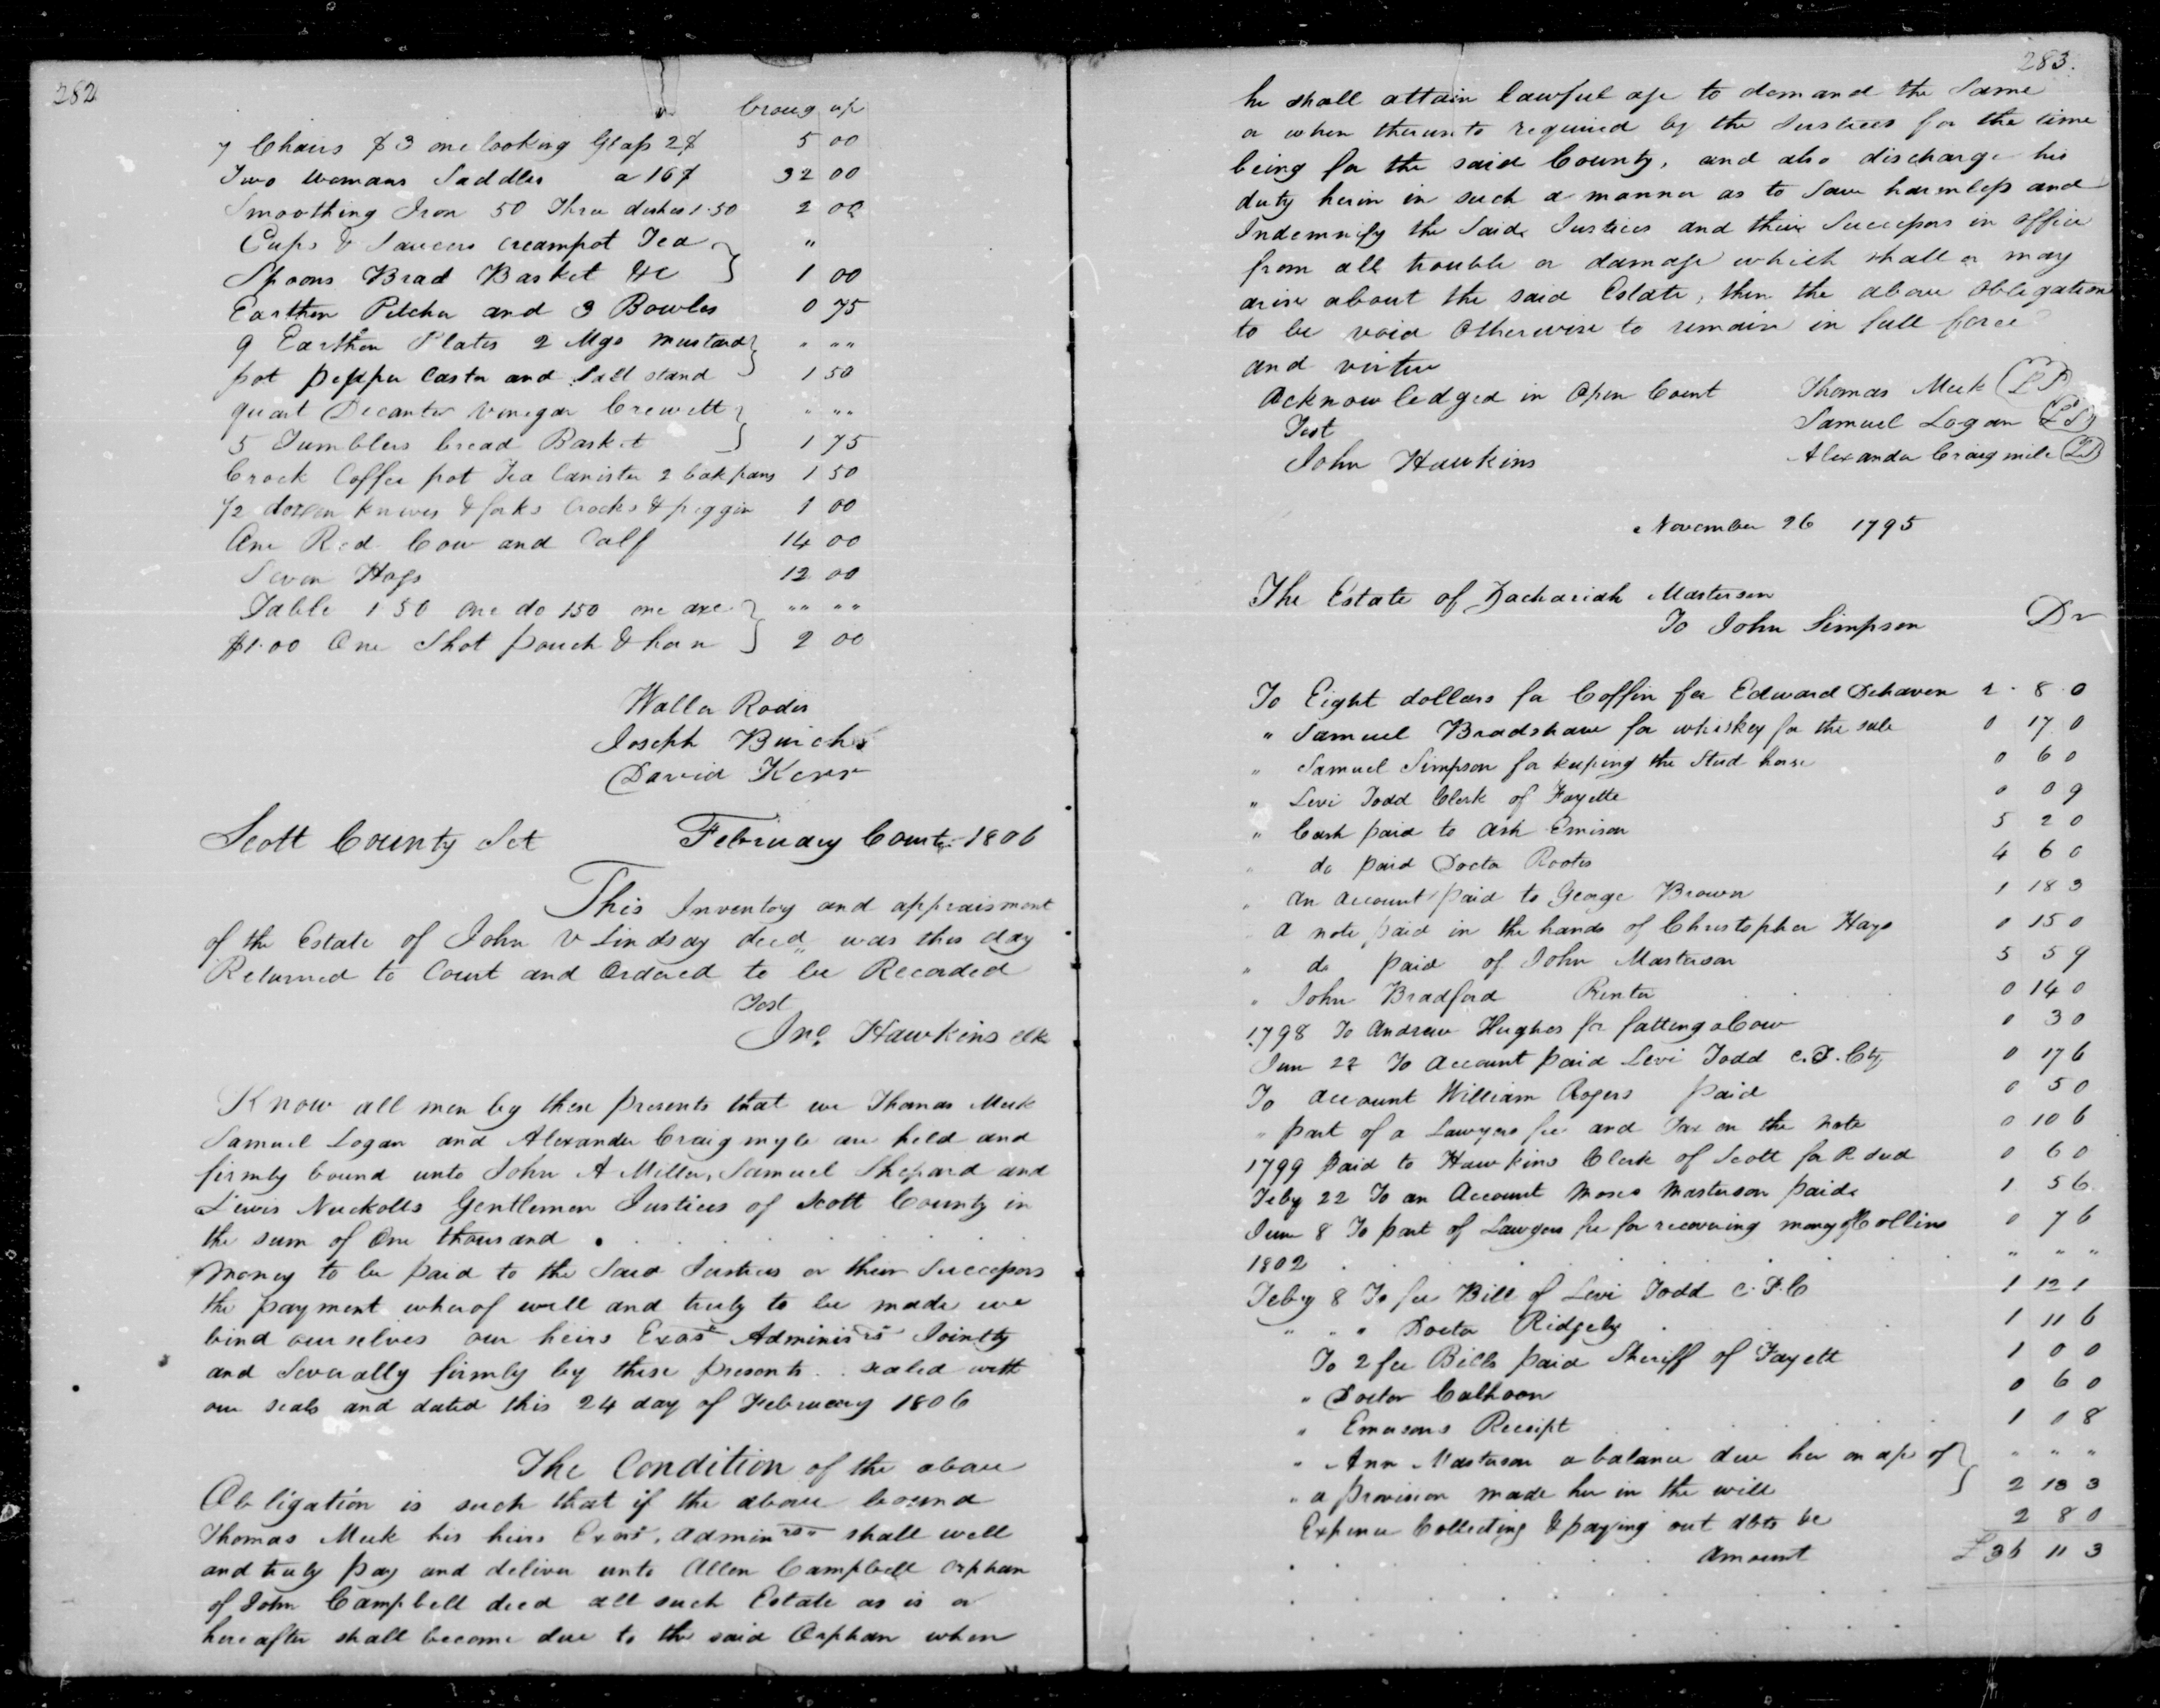 282
broug up
7 Chairs $3 one looking Glass 2$ 5 00
Two womans Saddles a 16$ 32 00
Smoothing Iron 50 Three dishes 1.50 2 00
Cups & Saucers creampot Tea "
Spoons Brad Basket &c 1 00
Earthen Pitcher and 3 Bowles 0 75
9 Earthen Plates 2 Mgs mustard " ""
pot pepper Castor and Salt stand 1 50
quart Decanter Vinegar Crewett " ""
5 Tumblers bread Basket 1 75
Crock Coffee pot Tea Canister 2 bakpans 1 50
1/2 dozen knives & forks Crocks & piggin 1 00
One Red Cow and Calf 14 00
Seven Hogs 12 00
Table 1 50 one do 150 one axe "" ""
$1.00 One Shot pouch & horn 2 00
Waller Rodes
Joseph Burch
David Kerr
Scott County Sct February Court 1806
This Inventory and appraisment
of the Estate of John V Lindsay decd was this day
Returned to Court and Ordered to be Recorded
Test
Jno Hawkins clk
Know all men by these presents that we Thomas Meek
Samuel Logan and Alexander Craigmyle are held and
firmly bound unto John A Miller, Samuel Shepard and
Lewis Nuckolls Gentlemen Justices of Scott County in
the sum of One thousand
money to be paid to the Said Justices or their Successors
the payment wherof well and truly to be made we
bind ourselves our heirs Exors Adminisrs Jointly
and Severally firmly by these presents . . sealed with
our seals and dated this 24 day of February 1806
The Condition of the above
Obligation is such that if the above bound
Thomas Meek his heirs Exors, adminrs shall well
and truly pay and deliver unto Allen Campbell orphan
of John Campbell decd all such Estate as is or
hereafter shall become due to the said Orphan when
283.
he shall attain lawful age to demand the Same
or when thereunto required by the Justices for the time
being for the said County, and also discharge his
duty herin in such a manner as to Save harmless and
Indemnify the Said Justices and their Successors in office
from all trouble or damage which shall or may
arise about the said Estate, then the above Obligation
to be void Otherwise to remain in full force
and virtue
Acknowledged in Open Court Thomas Meek (LS)
Test Samuel Logan (LS)
John Hawkins Alexander Craigmile (LS)
November 26 1795
The Estate of Zachariah Masterson
To John Simpson Dr
To Eight dollars for Coffin for Edward Dehaven 2 . 8 . 0
" Samuel Bradshaw for whiskey for the sale 0 17 0
" Samuel Simpson for keeping the Stud horse 0 6 0
" Levi Todd Clerk of Fayette 0 0 9
" Cash paid to Ash Emison 5 2 0
" do paid Doctor Rootes 4 6 0
" an account paid to George Brown 1 18 3
a note paid in the hands of Christopher Hays 0 15 0
" do paid of John Masterson 5 5 9
" John Bradford Printer 0 14 0
1798 To Andrew Hughes for fatting a Cow 0 3 0
Jun 22 To account paid Levi Todd C.F. Cty 0 17 6
To account William Rogers paid 0 5 0
" part of a Lawyers fee and Tax on the note 0 10 6
1799 paid to Hawkins Clerk of Scott for R deed 0 6 0
Feby 22 To an Account Moses Masterson paid 1 5 6
June 8 To part of Lawyers fee for recovering money of Collins 0 7 6
1802 " " "
Feby 8 To fee Bill of Levi Todd C.F.C 1 12 1
" " " Doctor Ridgely 1 11 6
To 2 fee Bills paid Sheriff of Fayett 1 0 0
" Doctor Calhoon 0 6 0
" Emersons Receipt 1 0 8
" Ann Masterson a balance due her on ap of " " "
" a provision made her in the will 2 13 3
Expence Collecting & paying out dbts be 2 8 0
Amount £36 11 3